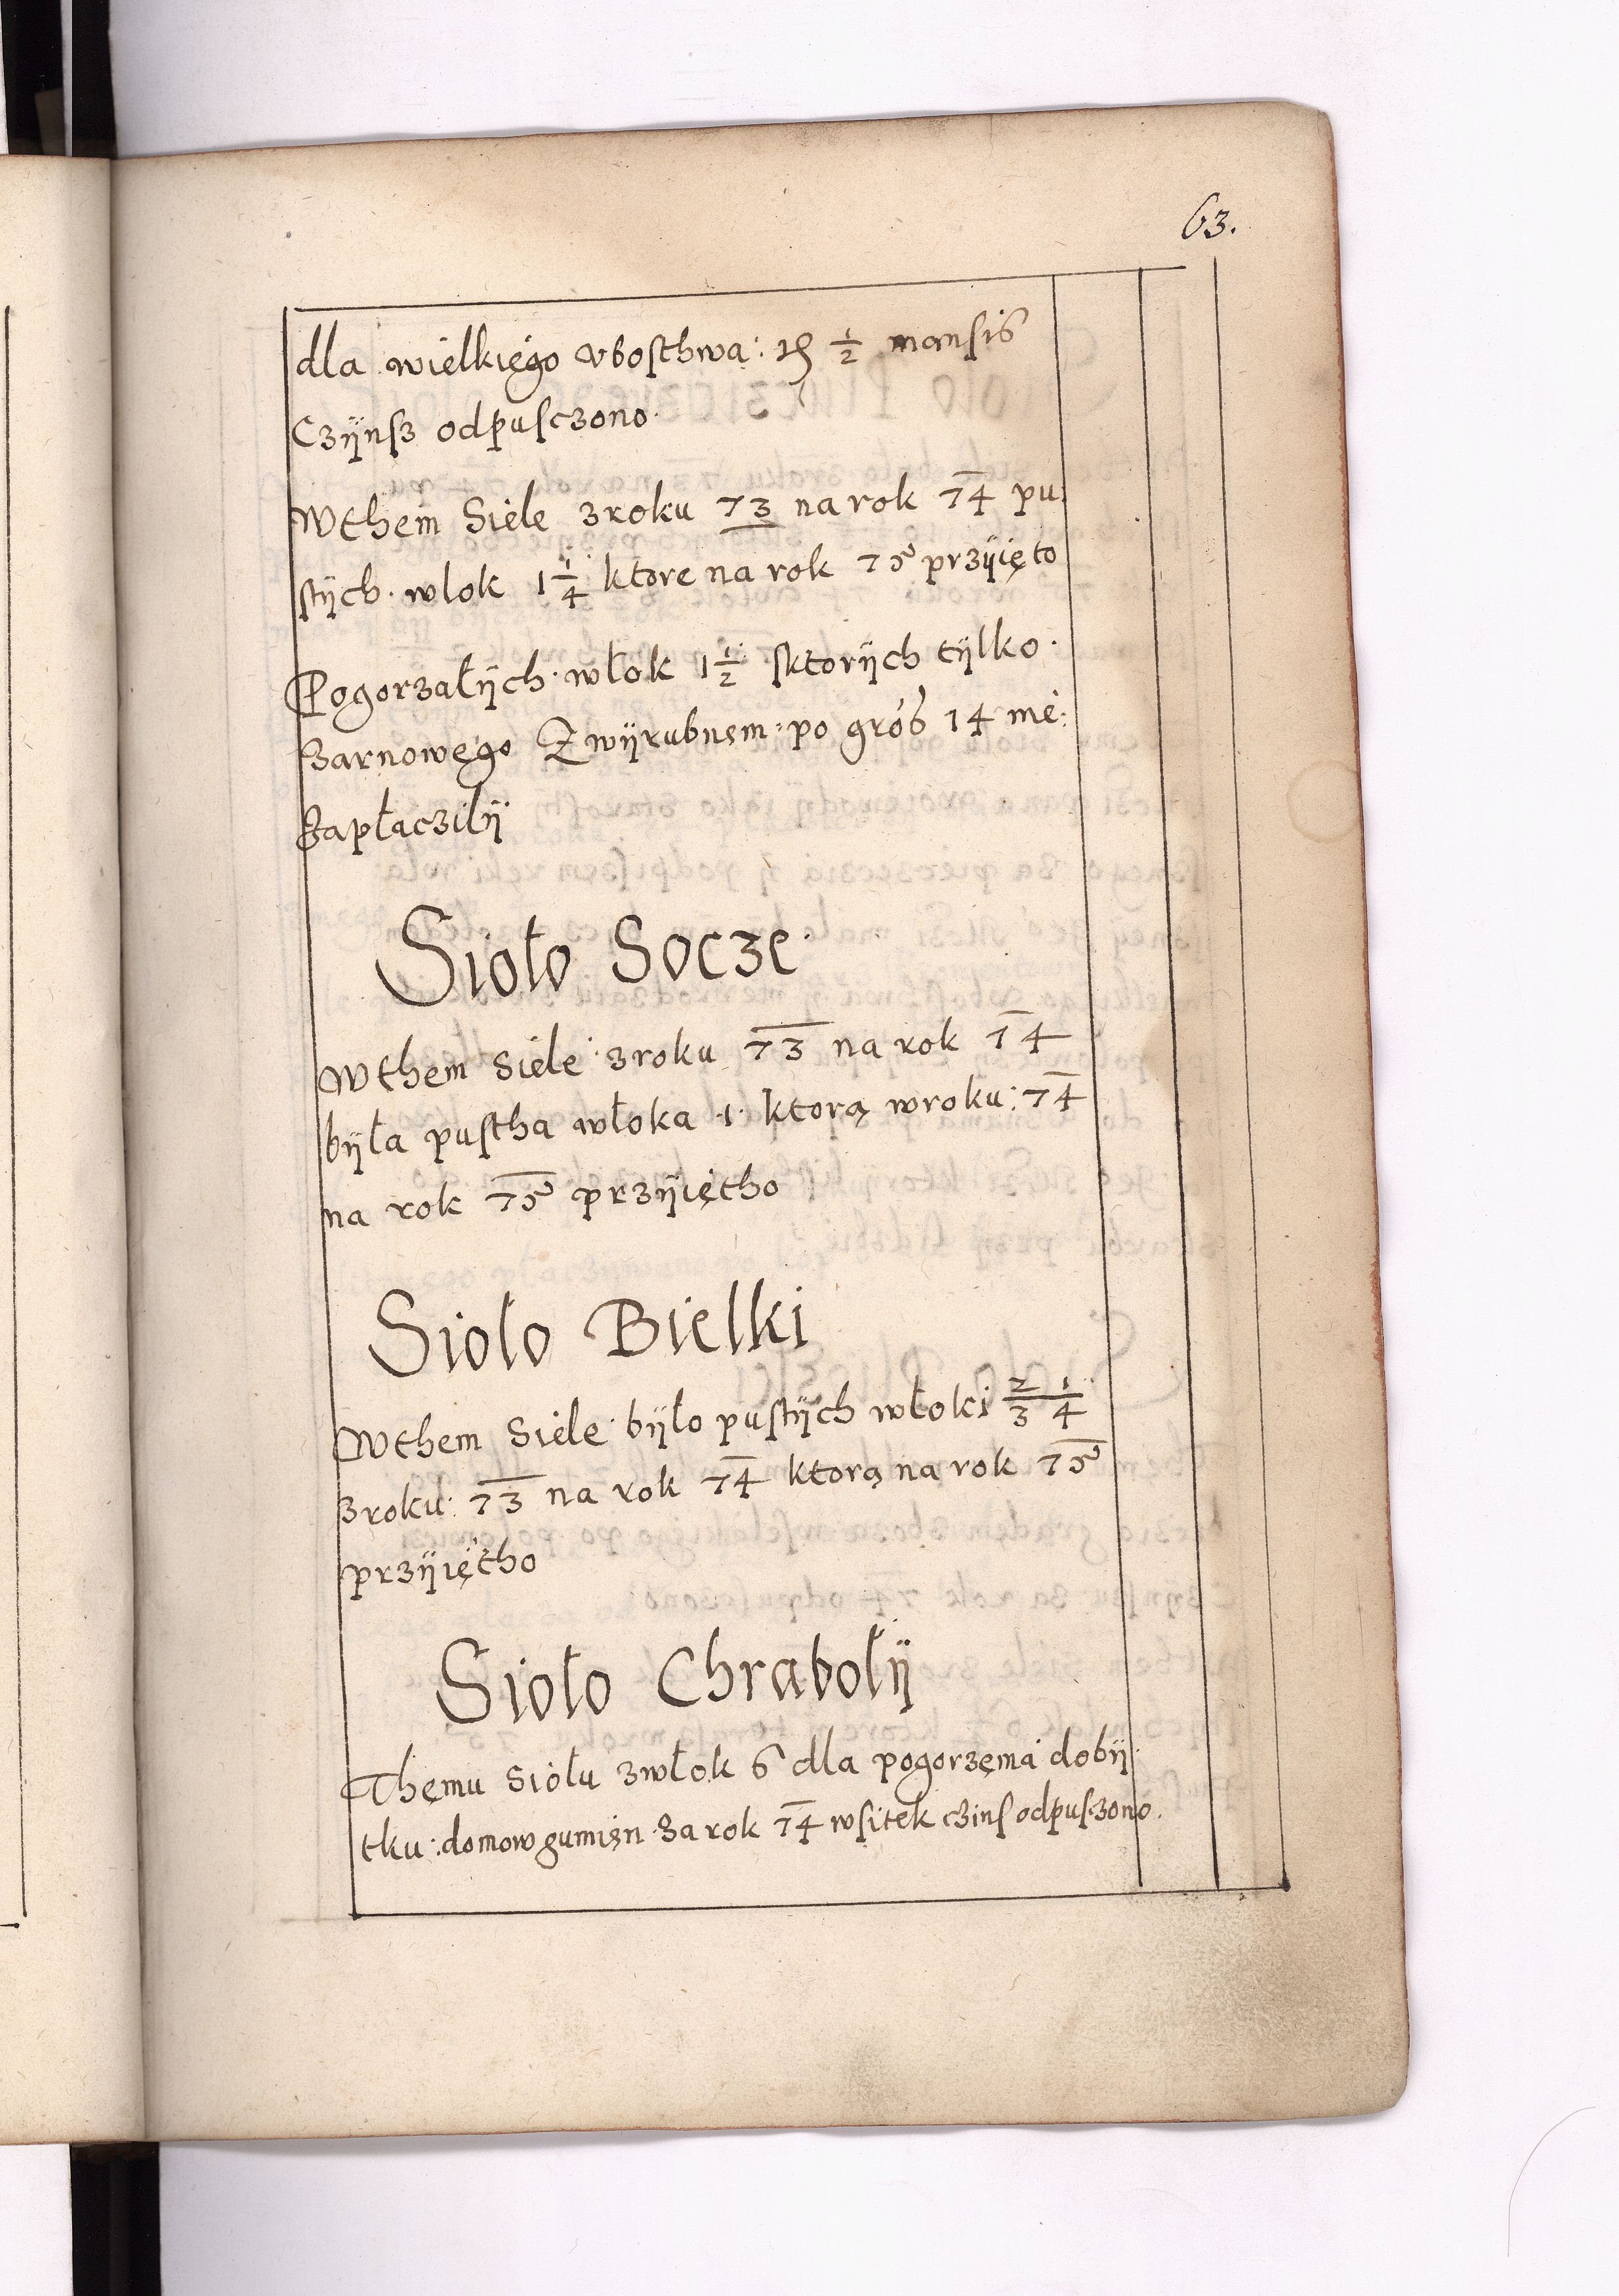 63.
dla wielkięgo vbosthwa: 15 1/2 mansis
Czÿnsz odpusczono
Wthem Siele zroku 73 na rok 74 pu
stÿch wlok 1 1/4 ktore na rok 75 przÿięto
Pogorzałÿch włok 1 1/2 sktorÿch tÿlko
Zarnowęgo Zwÿrubnem po gros 14 me:
Zapłaczilÿ
Sioło Socze
Wthem siele zroku 73 na rok 74
bÿła pustha włoka 1 ktorą wroku: 74
na rok 75 przÿiętho
Sioło Bielki
Wthem Siele bÿło pustÿch włoki 2/3 1/4
zroku: 73 na rok 74 ktorą na rok 75
przÿiętho
Sioło Chrabołÿ
Thęmu siołu zwłok 6 dla pogorzęma dobÿ
tku: domow gumięn za rok 74 wsitek czins odpusczono.